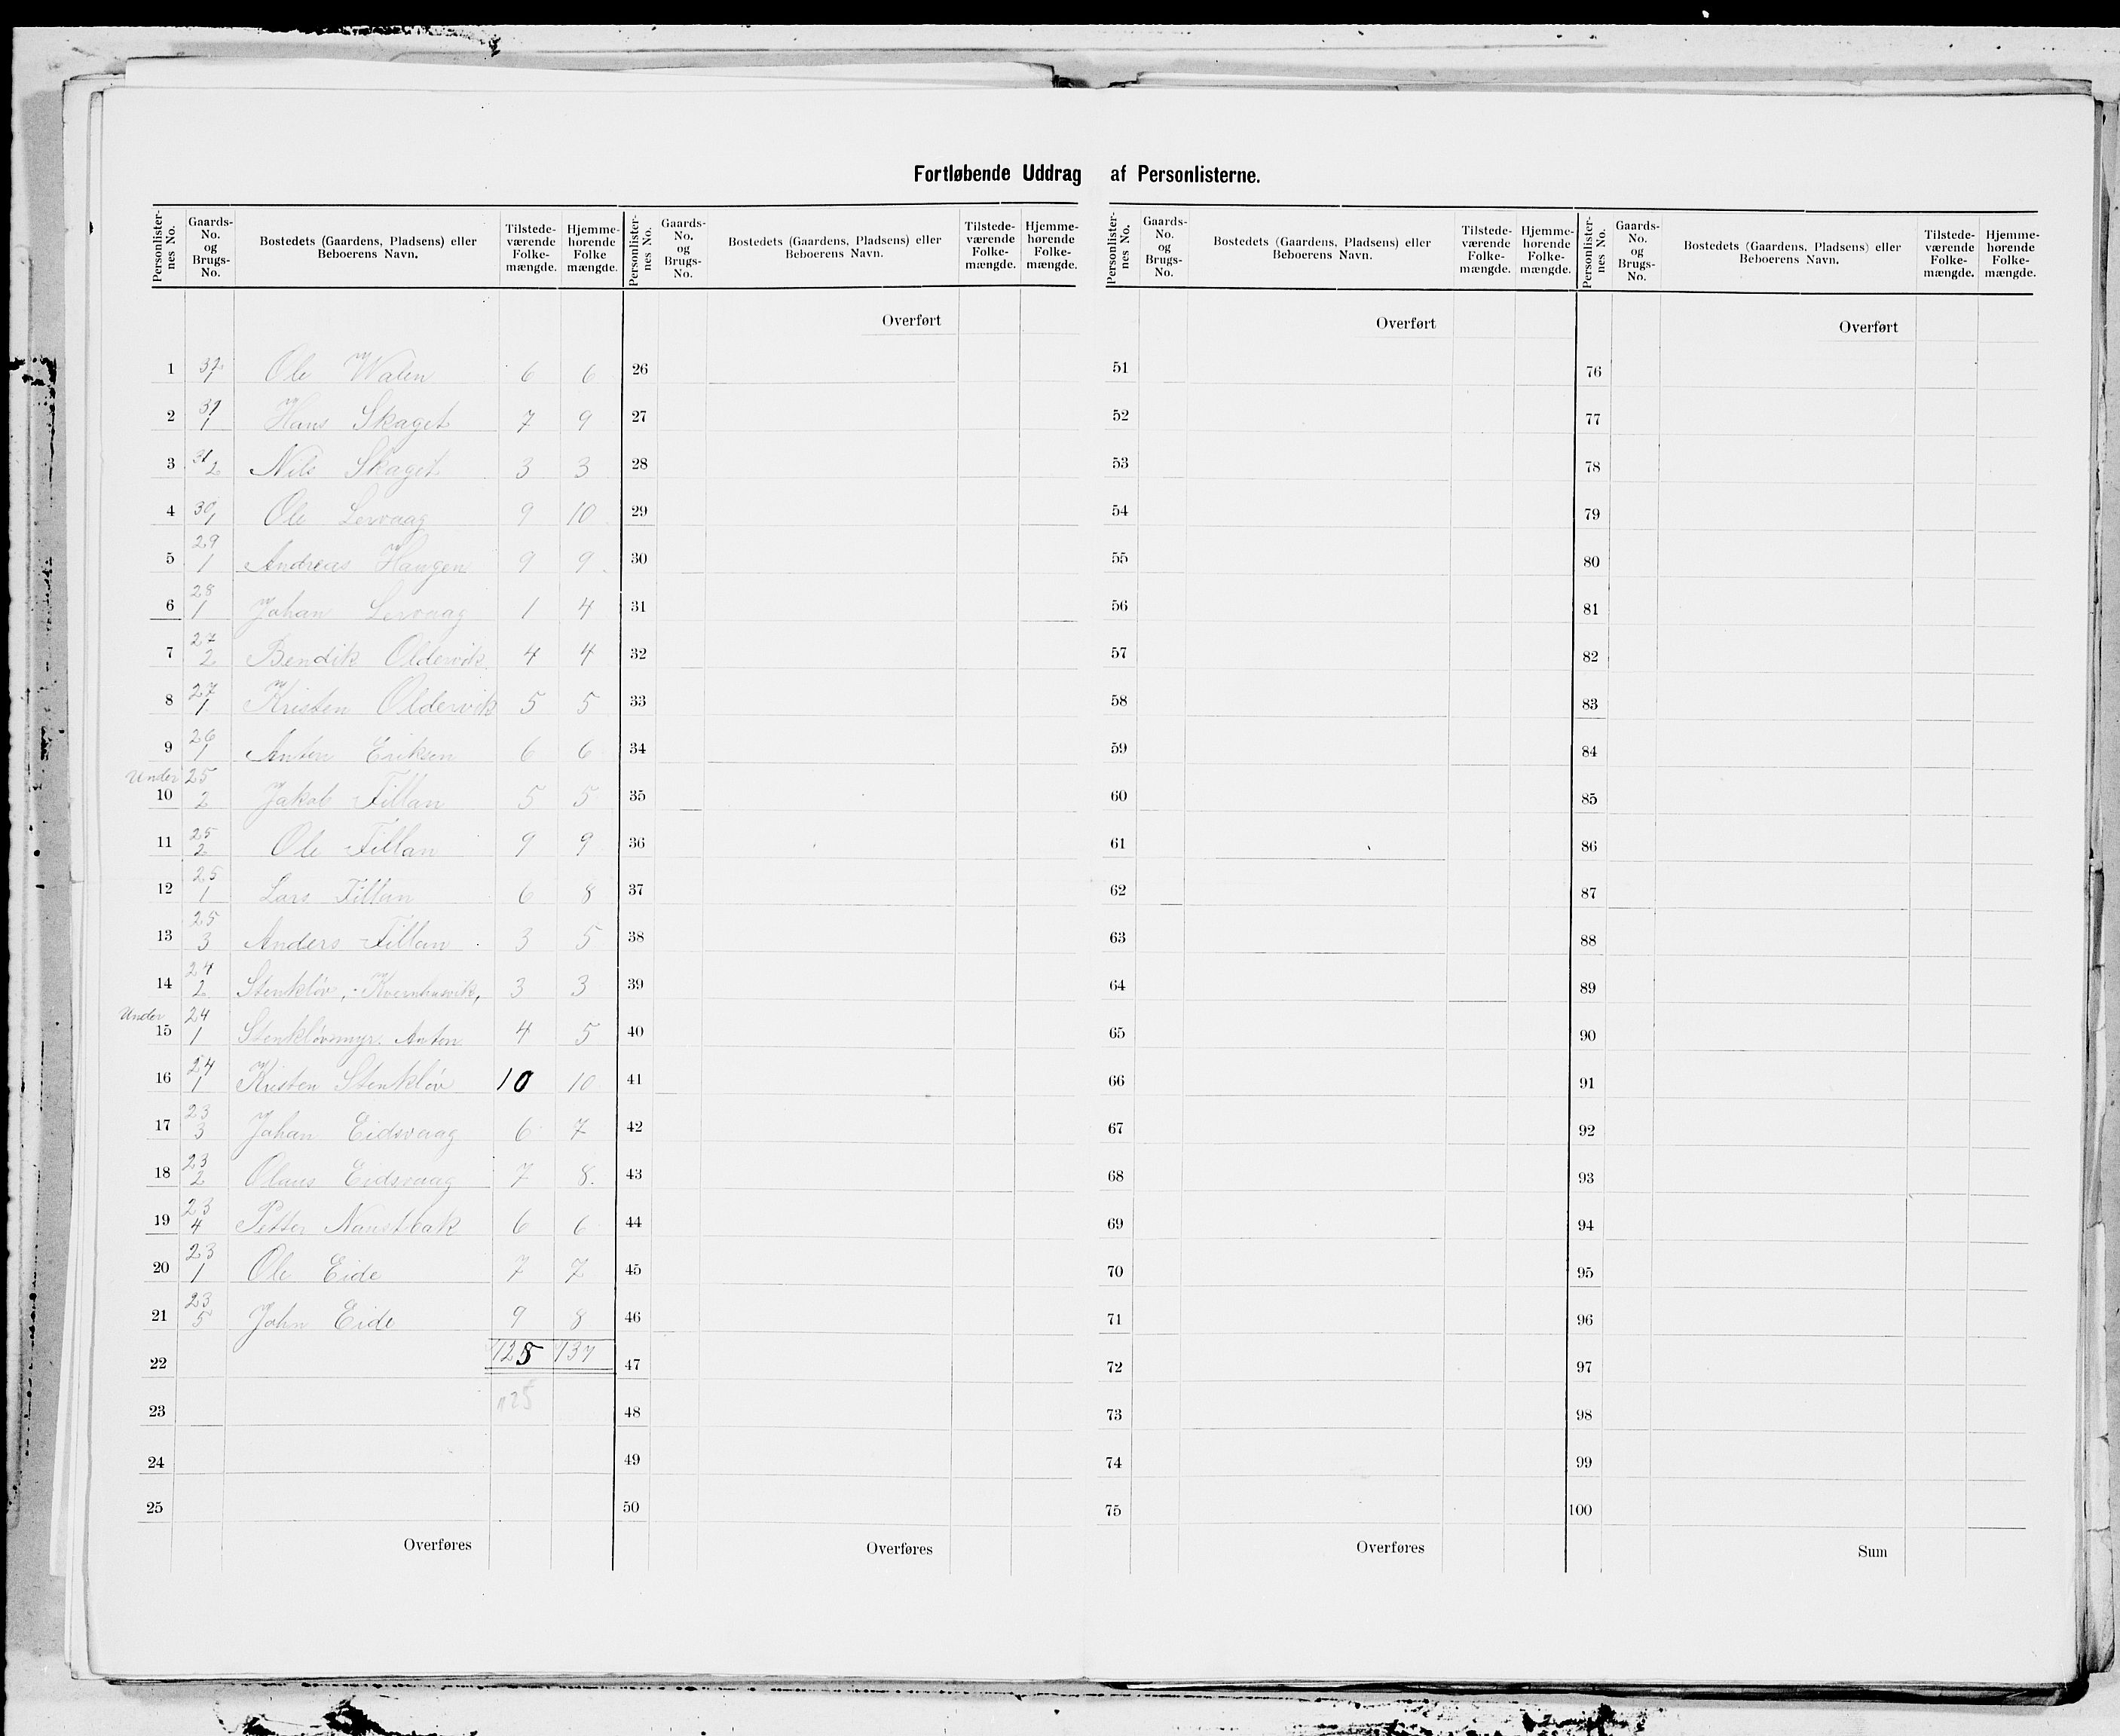 Fortløbende Uddrag af Personlisterne.
Personlisternes No. Gaards-No. og Brugs-No. Bostedets (Gaardens, Pladsens) eller Beboerens Navn. Tilstedeværende Folkemængde. Hjemmehørende Folkemængde.
Personlisternes No. Gaards-No. og Brugs-No. Bostedets (Gaardens, Pladsens) eller Beboerens Navn. Tilstedeværende Folkemængde. Hjemmehørende Folkemængde.
Personlisternes No. Gaards-No. og Brugs-No. Bostedets (Gaardens, Pladsens) eller Beboerens Navn. Tilstedeværende Folkemængde. Hjemmehørende Folkemængde.
Personlisternes No. Gaards-No. og Brugs-No. Bostedets (Gaardens, Pladsens) eller Beboerens Navn. Tilstedeværende Folkemængde. Hjemmehørende Folkemængde.
Overført Overført Overført
1 32/1 Ole Walen 6 6 26 51 76
2 31/1 Hans Skaget 7 9 27 52 77
3 31/2 Nils Skaget 3 3 28 53 78
4 30/1 Ole Lervaag 9 10 29 54 79
5 29/1 Andreas Haugen 9 9 30 55 80
6 28/1 Johan Lervaag 1 4 31 56 81
7 27/2 Bendik Oldervik 4 4 32 57 82
8 27/1 Kristen Oldervik 5 5 33 58 83
9 26/1 Anton Eriksen 6 6 34 59 84
Under 10 25/2 Jakob Fillan 5 5 35 60 85
11 25/2 Ole Fillan 9 9 36 61 86
12 25/1 Lars Fillan 6 8 37 62 87
13 25/3 Anders Fillan 3 5 38 63 88
14 24/2 Stenkløv, Kvernhusvik, 3 3 39 64 89
Under 15 24/1 Stenkløvmyr. Anton 4 5 40 65 90
16 24/1 Kristen Stenkløv 10 10 41 66 91
17 23/3 Johan Eidsvaag 6 7 42 67 92
18 23/2 Olaus Eidsvaag 7 8. 43 68 93
19 23/4 Petter Naustbak 6 6 44 69 94
20 23/1 Ole Eide 7 7 45 70 95
21 23/5 John Eide 9 8 46 71 96
22 125 137 47 72 97
23 125 48 73 98
24 49 74 99
25 50 75 100
Overføres Overføres Overføres Sum